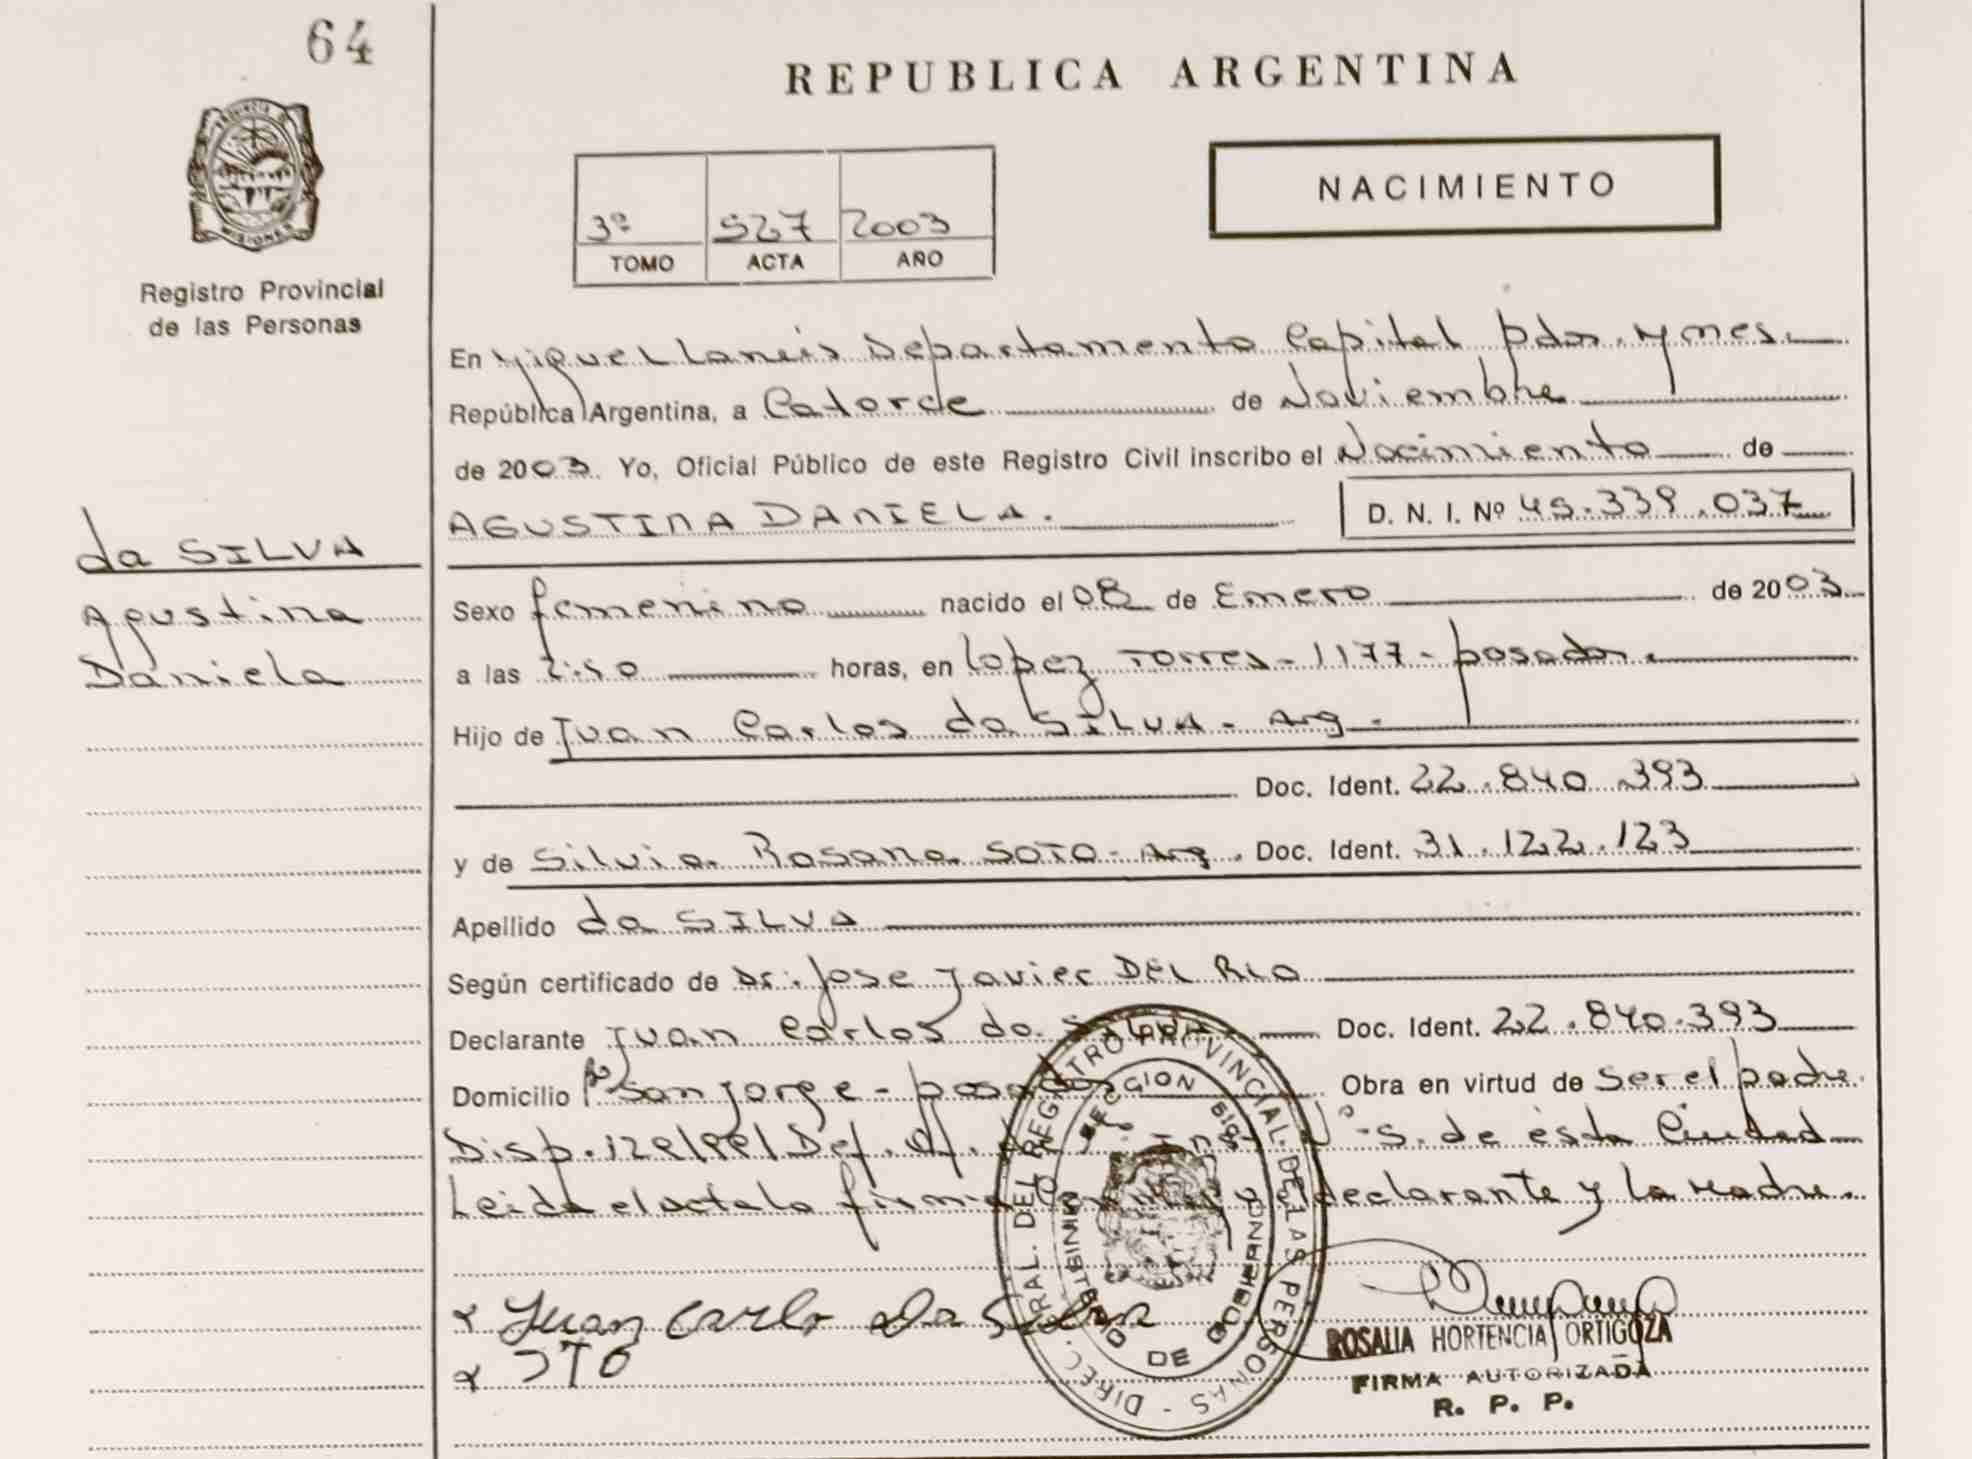 64
REPUBLICA ARGENTINA
PROVINCIA DE
MISIONES
Registro Provincial
de las Personas
NACIMIENTO
3º 527 2003
TOMO ACTA AÑO
En Miguel Lanús Departamento Capital, Pdas. Mnes.
República Argentina, a Catorce de Noviembre
de 2003. Yo, Oficial Público de este Registro Civil inscribo el Nacimiento de
AGUSTINA DANIELA. D. N. I. Nº 45.339.037
da SILVA
Agustina
Daniela
Sexo femenino nacido el 08 de Enero de 2003
a las horas, en Lopez Torres - 1177 - posadas.
Hijo de Juan Carlos da SILVA - Arg -
Doc. Ident. 22.840.393
y de Silvia Rosana SOTO - Arg. Doc. Ident. 31.122.123
Apellido da SILVA
Según certificado de Dr. Jose Javier DEL RIO
Declarante Juan Carlos da Silva Doc. Ident. 22.840.393
Domicilio Bº San Jorge - posadas Obra en virtud de Ser el padre.
Disp. Def. S. de ésta Ciudad
Leida el acta la declarante y la Madre.
Juan Carlo Da Silva
DIREC. GRAL. DEL REGISTRO PROVINCIAL DE LAS PERSONAS
MINISTERIO DE GOBIERNO
ROSALIA HORTENCIA ORTIGOZA
FIRMA AUTORIZADA
R. P. P.